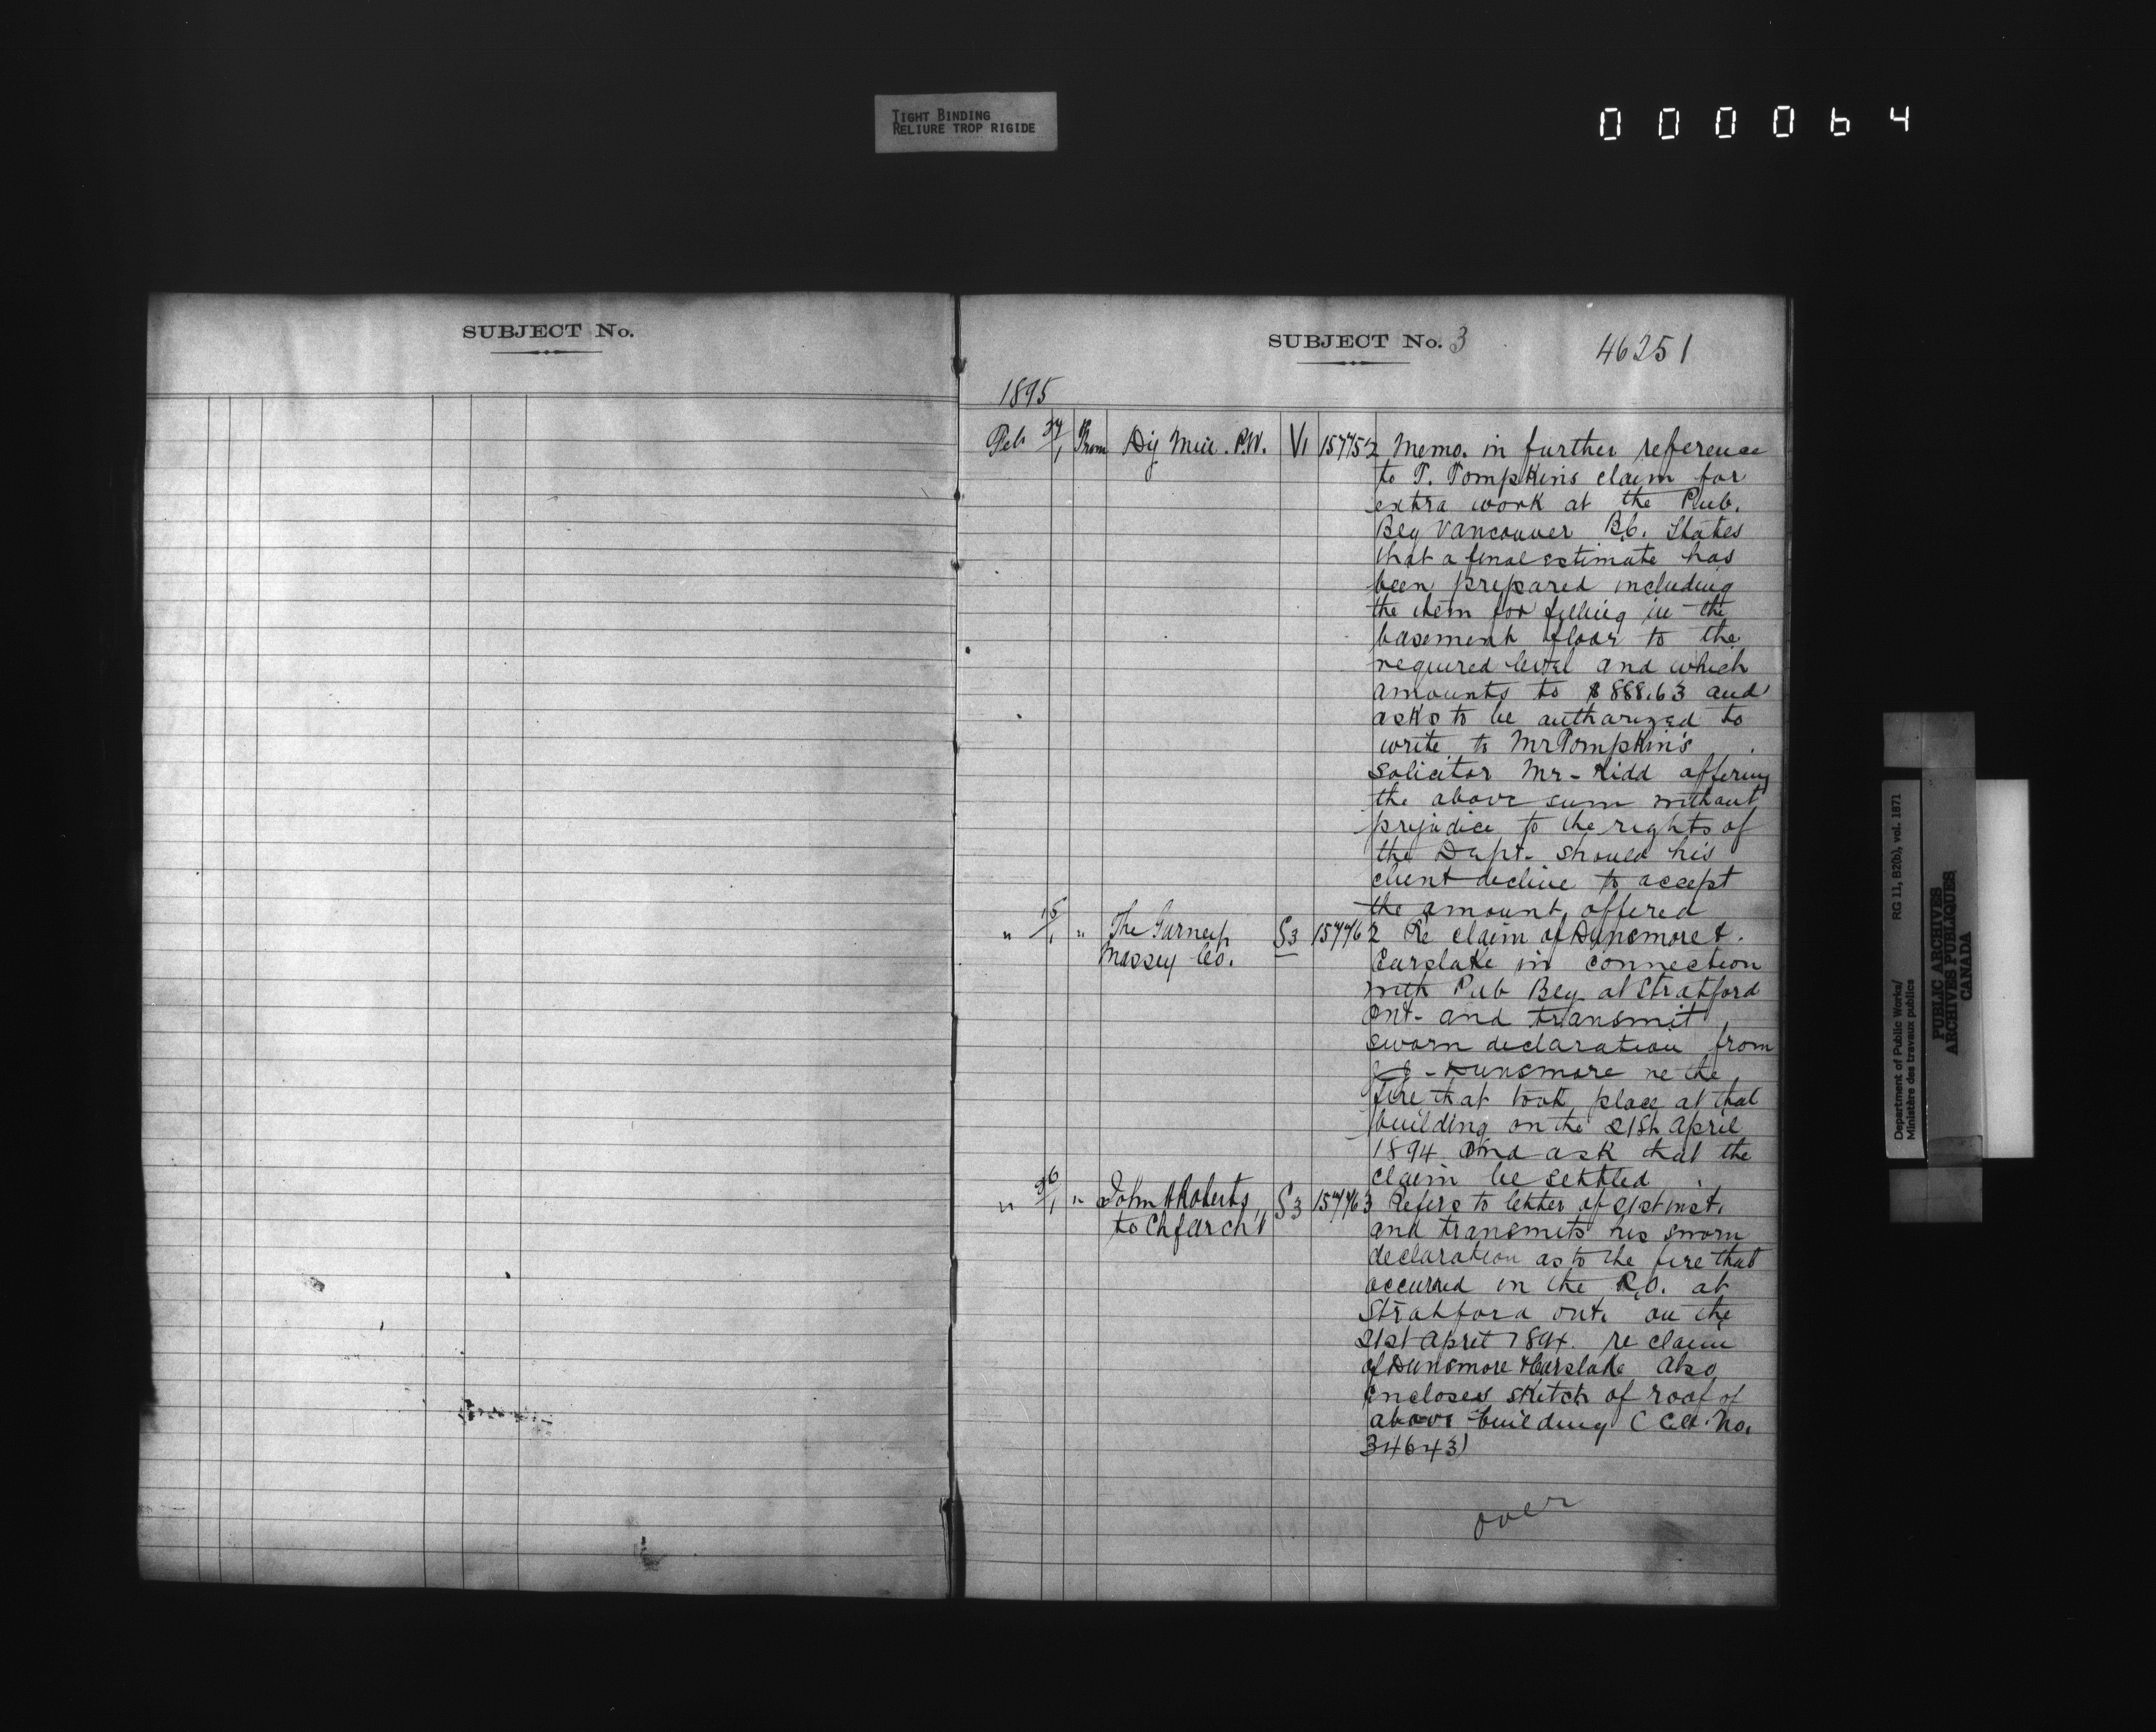 TIGHT BINDING
RELIURE TROP RIGIDE
000064
SUBJECT No.
SUBJECT No. 3 46251
1895
Feb 27/1 From P.W. V1 157752 Memo. in further reference
to T. Tompkins claim for
extra work at the Pub.
Bey Vancouver B.C. States
that a final estimate has
been prepared including
the item for filling in the
basement floor to the
required level and which
amounts to $888.63 and
asks to be authorized to
write to Mr Tompkin's
Solicitor Mr- Kidd offering
the above sum without
prejudice to the rights of
the Dept. should his
client decline to accept
the amount offered
" 15/1 " The Gurney S3 157762 Re claim of Dunsmore &
Massey Co. Carslake in connection
with Pub Bey at Stratford
Ont- and transmit
sworn declaration from
Dunsmore re the
fire that took place at that
building on the 21st April
1894 and ask that the
claim be settled
" 26/1 " John A Roberts S3 157763 Refers to letter of 21st inst.
to Chf arch't and transmits his sworn
declaration as to the fire that
occurred in the P.O. at
Stratford Ont. on the
21st April 1894. re claim
of Dunsmore & Carslake Also
encloses sketch of roof of
above building ( No.
34643)
over
Department of Public Works/ RG 11, B2(b), vol. 1871
Ministère des travaux publics
PUBLIC ARCHIVES
ARCHIVES PUBLIQUES
CANADA